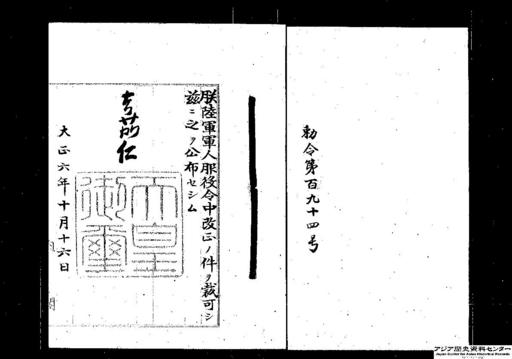 勅令第百九十四号
朕陸軍軍人服役令中改正ノ件ヲ裁可シ
茲ニ之ヲ公布セシム
嘉仁
天皇
御璽
大正六年十月十六日
アジア歴史資料センター
Japan Center for Asian Historical Records